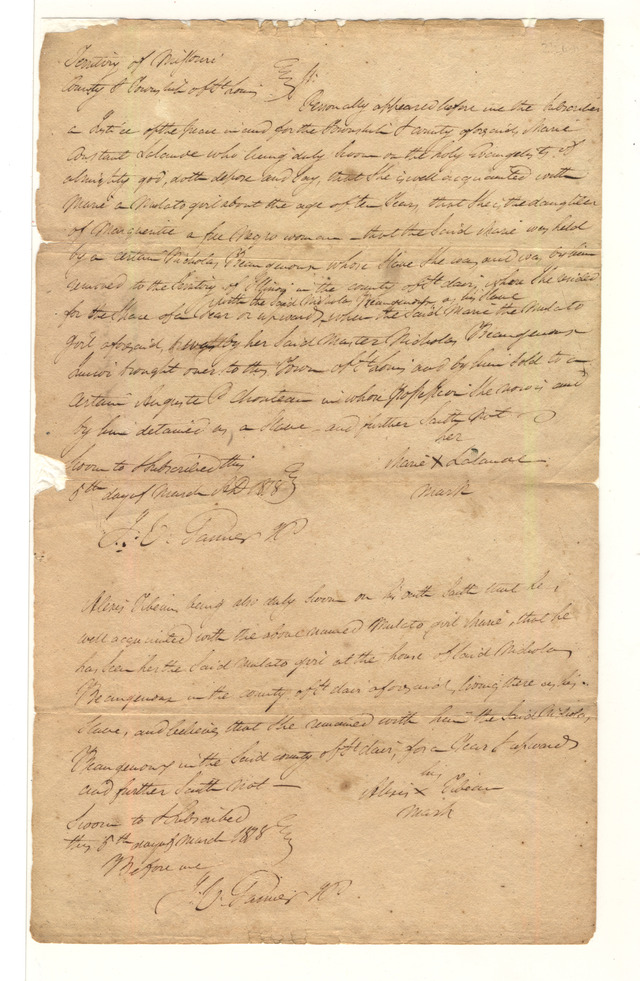 Territory of Missouri
County & Township of St Louis } Ss.
Personally appeared before me the subscriber
a Justice of the peace in and for the Township & County aforesaid, Marie
Constant Lalande who being duly sworn on the holy Evangelists of
almighty god, doth depose and say, that she is well acquainted with
Marie a Mulato girl about the age of ten Years, that she is the daughter
of Marguerite a free Negro woman – that the said Marie was held
by a certain Nicholas Beaugenoux whose Slave she was, and was by him
removed to the Territory of Illinois in the county of St clair, where she resided
with the said Nicholas Beaugenoux as his slave
for the space of a Year or upwards, when the said Marie the Mulato
girl aforesaid, by her said Master Nicholas Beaugenoux
Junior brought over to this Town of St Louis and by him sold to a
certain Auguste P. Chouteau in whose possession she now is and
by him detained as a Slave – and further saith not –
her
Marie X Lalande
mark
Sworn to & Subscribed this
5th day of March AD 1818
J. V. Garnier JP
Alexis being also duly sworn on his oath saith that he is
well acquainted with the above named Mulato girl Marie, that he
has seen her the said Mulato girl at the house of said Nicholas
Beaugenoux in the county of St clair aforesaid, living there as his
Slave, and believes that she remained with him the said Nicholas
Beaugenoux in the said county of St clair, for a Year & upwards
and further saith not –
his
Alexis X
mark
Sworn to & Subscribed
this 5th day of March 1818
Before me
J. V. Garnier JP